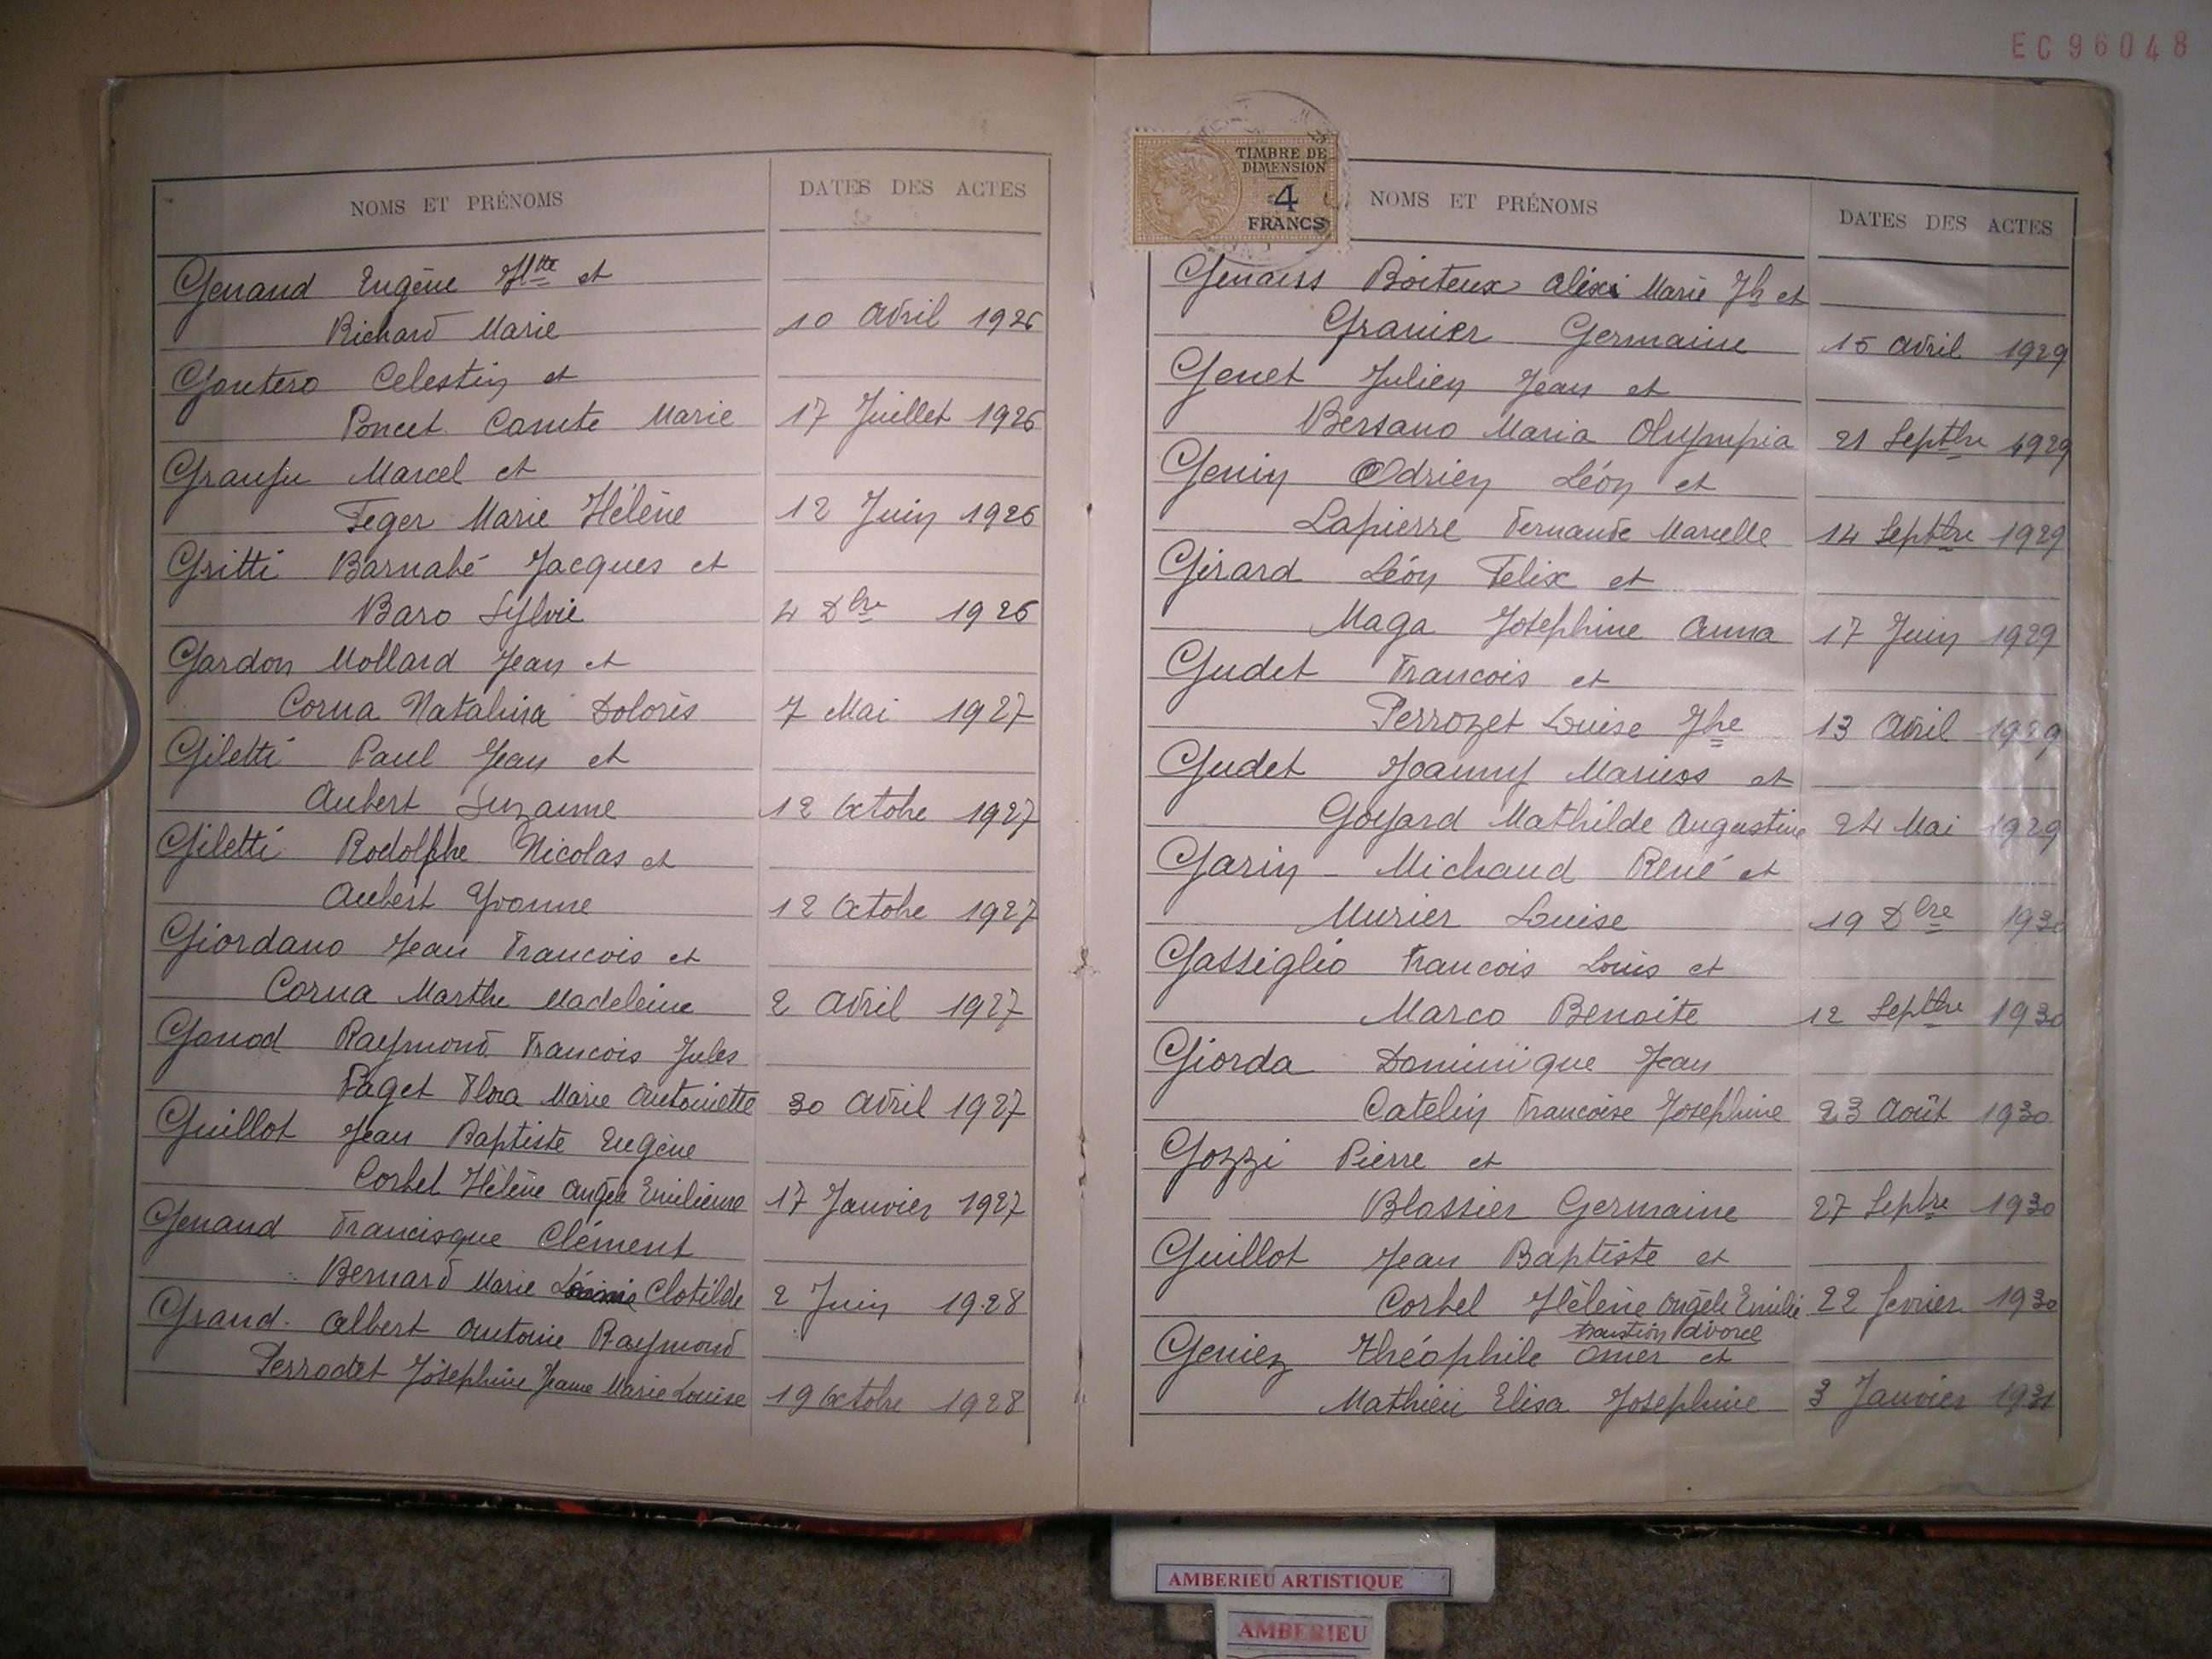 EC96048
NOMS ET PRÉNOMS
DATES DES ACTES
Genand Eugène Htte et
Richard Marie 10 Avril 1926
Gontero Celestin et
Poncet Camite Marie 17 Juillet 1926
Granju Marcel et
Feger Marie Hélène 12 Juin 1926
Gritti Barnabé Jacques et
Baro Sylvie 4 Dbre 1926
Gardon Mollard Jean et
Corna Natalina Dolorès 7 Mai 1927
Giletti Paul Jean et
Aubert Suzanne 12 Octobre 1927
Giletti Rodolphe Nicolas et
Aubert Yvonne 12 Octobre 1927
Giordano Jean Francois et
Corna Marthe Madeleine 2 Avril 1927
Gonod Raymond Francois Jules
Paget Flora Marie Antoinette 30 Avril 1927
Guillot Jean Baptiste Eugène
Corbel Hélène Angèle Emilienne 17 Janvier 1927
Genand Francisque Clément
Bernard Marie Clotilde 2 Juin 1928
Grand Albert Antoine Raymond
Perrodet Joséphine Jeanne Marie Louise 19 Octobre 1928
TIMBRE DE
DIMENSION
4
FRANCS
NOMS ET PRÉNOMS
DATES DES ACTES
Genaiss Boiteux Alexi Marie Jh et
Granier Germaine 15 Avril 1929
Genet Julien Jean et
Bersano Maria Olympia 21 Septbre 1929
Genin Adrien Léon et
Lapierre Fernande Marcelle 14 Septbre 1929
Girard Léon Felix et
Maga Josephine Anna 17 Juin 1929
Gudet Francois et
Perrozet Louise Jhe 13 Avril 1929
Gudet Joanny Marius et
Goyard Mathilde Augustine 24 Mai 1929
Garin - Michaud René et
Murier Louise 19 Dbre 1930
Gassiglio Francois Louis et
Marco Benoite 12 Septbre 1930
Giorda Dominique Jean
Catelin Francoise Josephine 23 Août 1930
Gozzi Pierre et
Blassier Germaine 27 Septbre 1930
Guillot Jean Baptiste et
Corbel Hélène Angèle Emilie 22 fevrier 1930
divorce
Geniez Théophile Omer et
Mathieu Elisa Josephine 3 Janvier 1931
AMBERIEU ARTISTIQUE
AMBERIEU